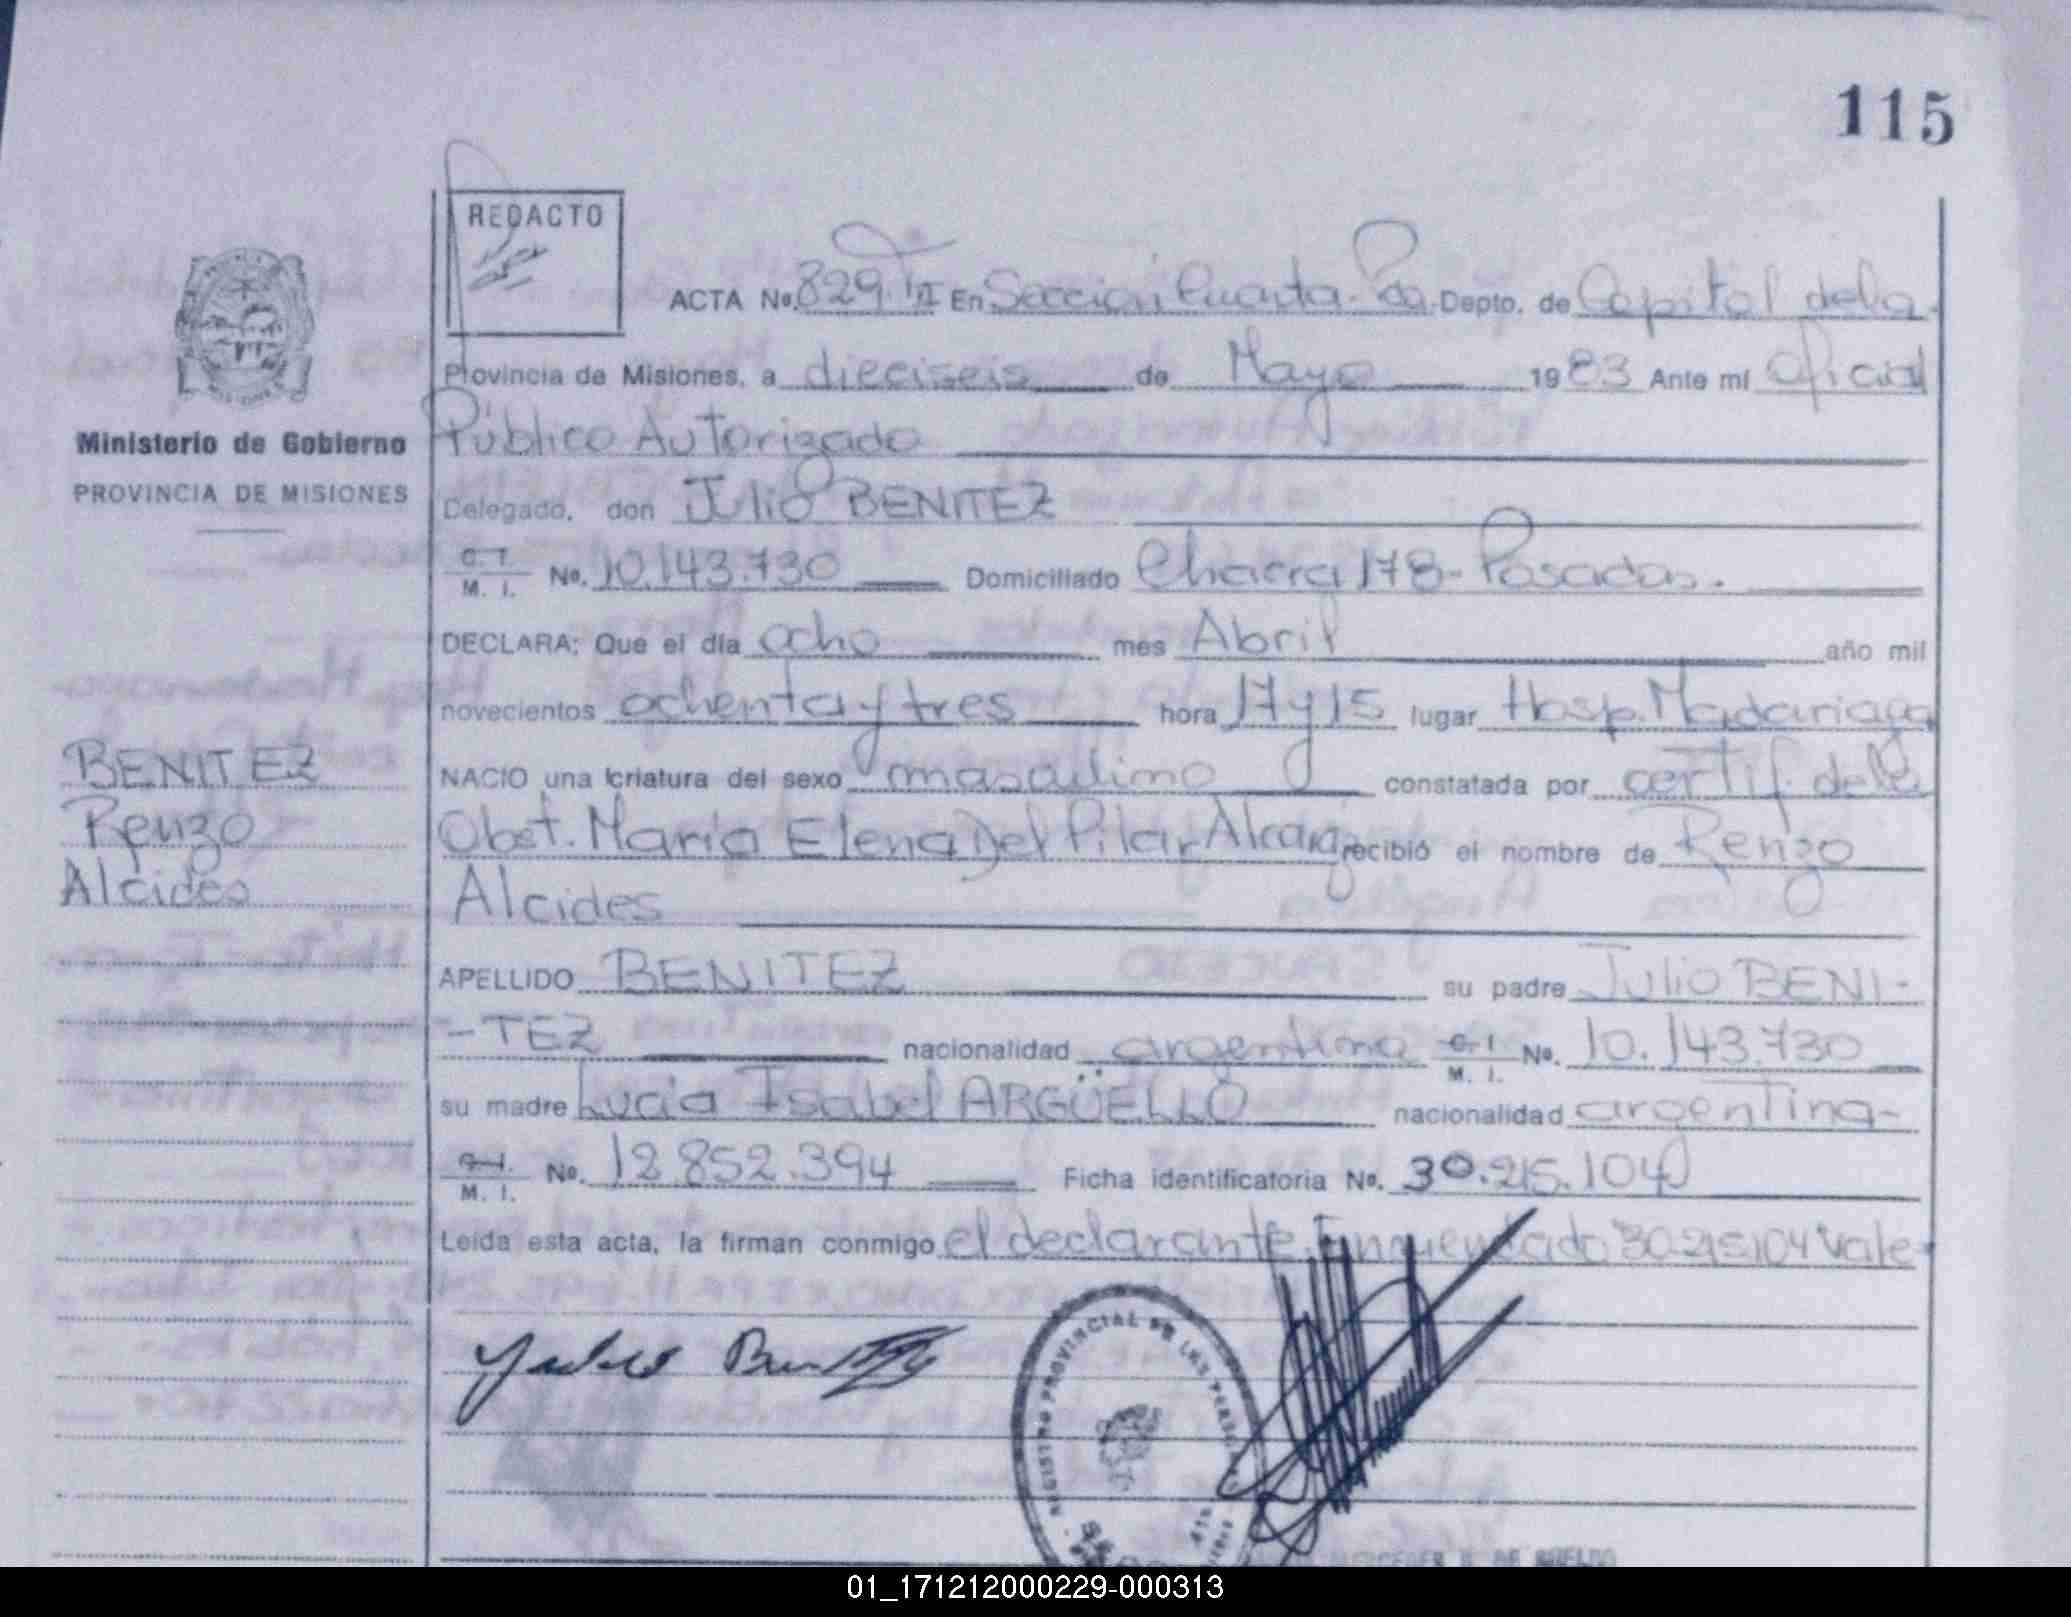 115
REDACTO
ACTA No. 829. T II En Sección Cuarta. Pa. Depto. de Capital de la
Provincia de Misiones, a dieciseis de Mayo 1983 Ante mi Oficial
Ministerio de Gobierno
Público Autorizado
PROVINCIA DE MISIONES
Delegado, don Julio BENITEZ
C. I. M. I. No. 10.143.730 Domiciliado Chacra 178 - Posadas.
DECLARA: Que el día ocho mes Abril año mil
novecientos ochenta y tres hora 17 y 15 lugar Hosp. Madariaga
BENITEZ
NACIO una criatura del sexo masculino constatada por certif. de la
Renzo
Obst. Maria Elena Del Pilar Alcaraz recibió el nombre de Renzo
Alcides
Alcides
APELLIDO BENITEZ su padre Julio BENI-
-TEZ nacionalidad argentina C. I. M. I. No. 10.143.730
su madre Lucia Isabel ARGÜELLO nacionalidad argentina-
C. I. M. I. No. 12.852.394 Ficha identificatoria No. 30.215.104
Leída esta acta, la firman conmigo el declarante. Enmendado "30.215.104" Vale-
Julio Benitez
REGISTRO PROVINCIAL DE LAS PERSONAS
01_171212000229-000313